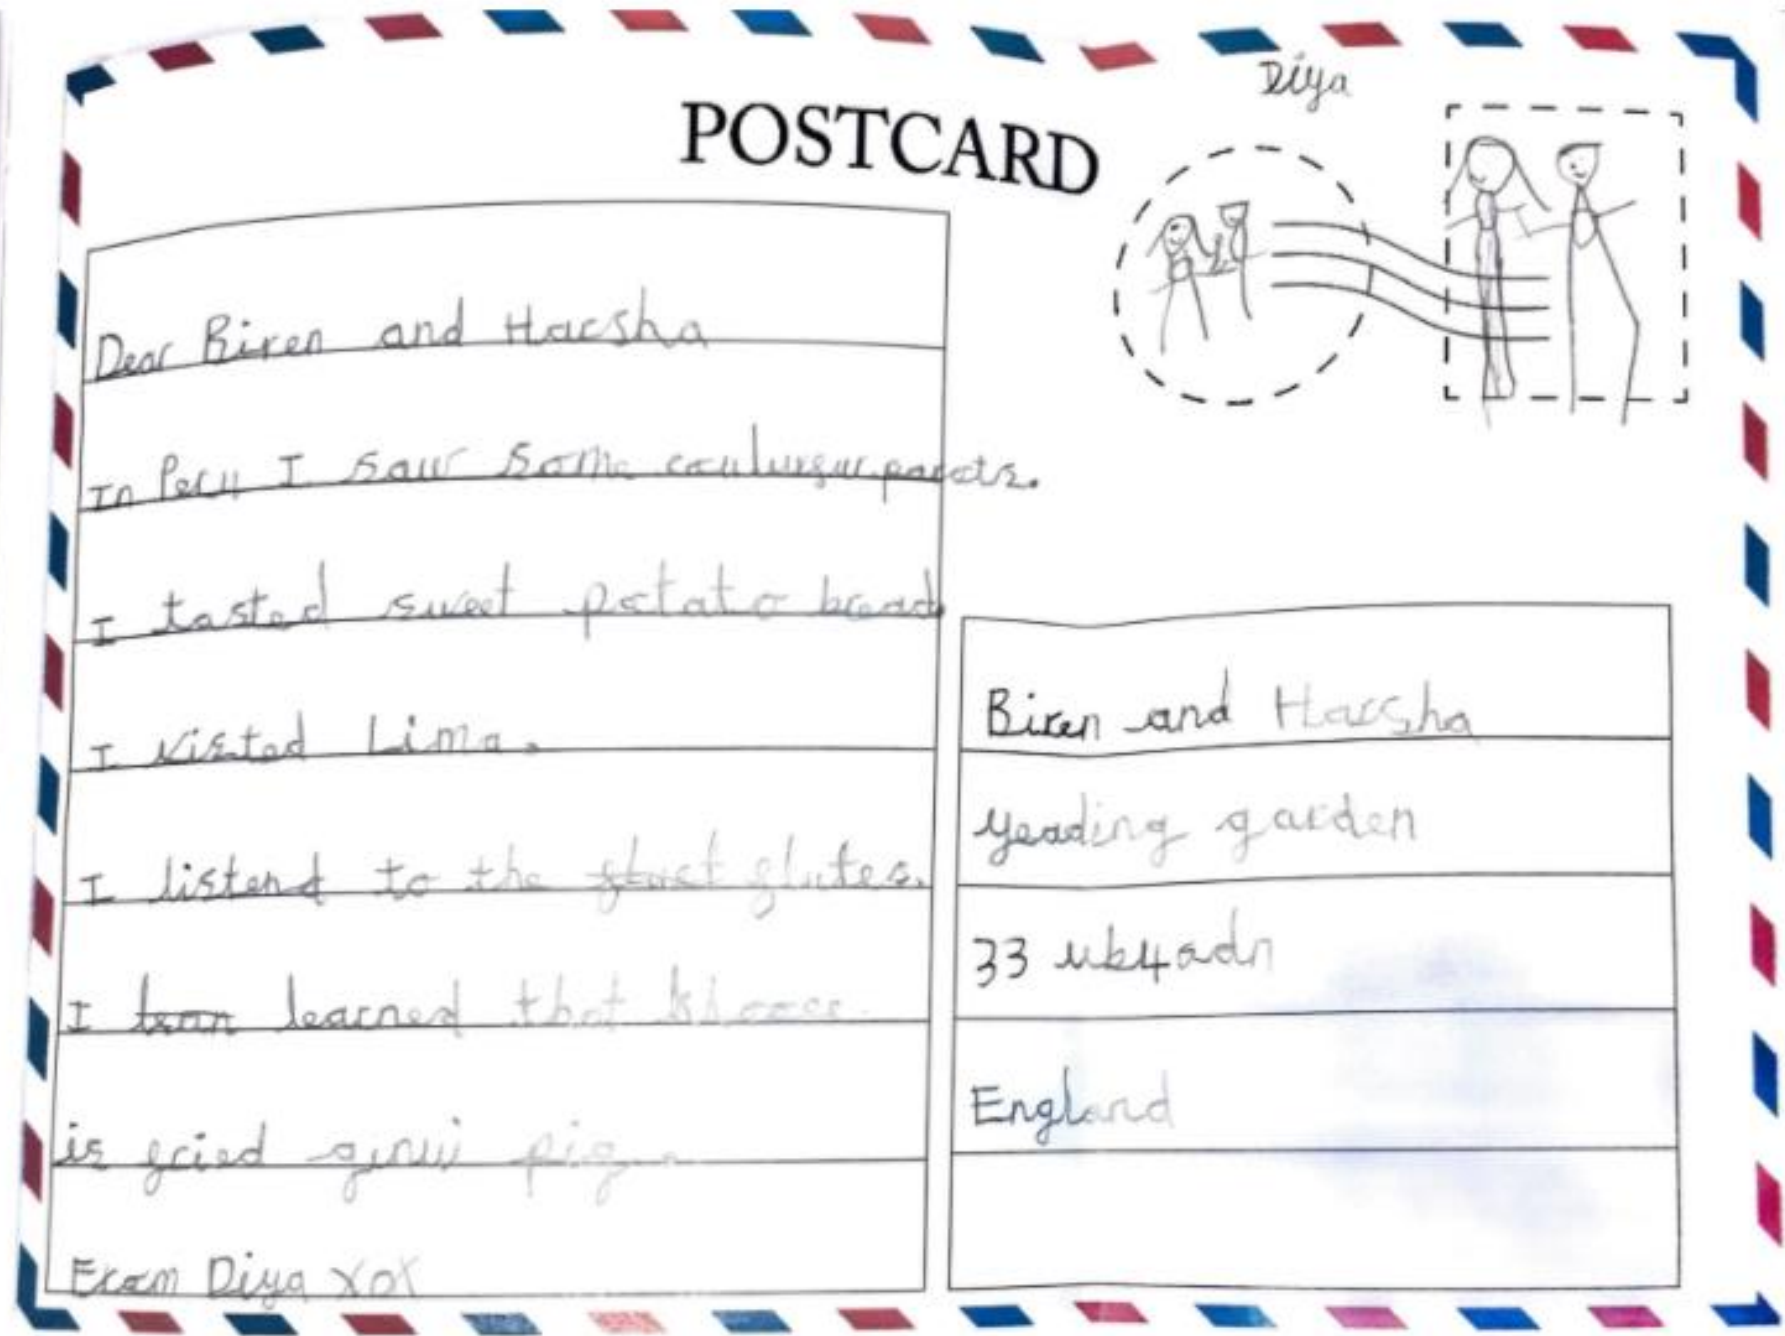 Diya
POSTCARD
Dear Biren and Harsha
In Peru I saw some coulurfur parots.
I tasted sweet potato bread
I visted Lima.
I listend to the flutes.
I learned that
is fried ginui pig.
From Diya xox
Biren and Harsha
Yeading garden
33 ub4adn
England